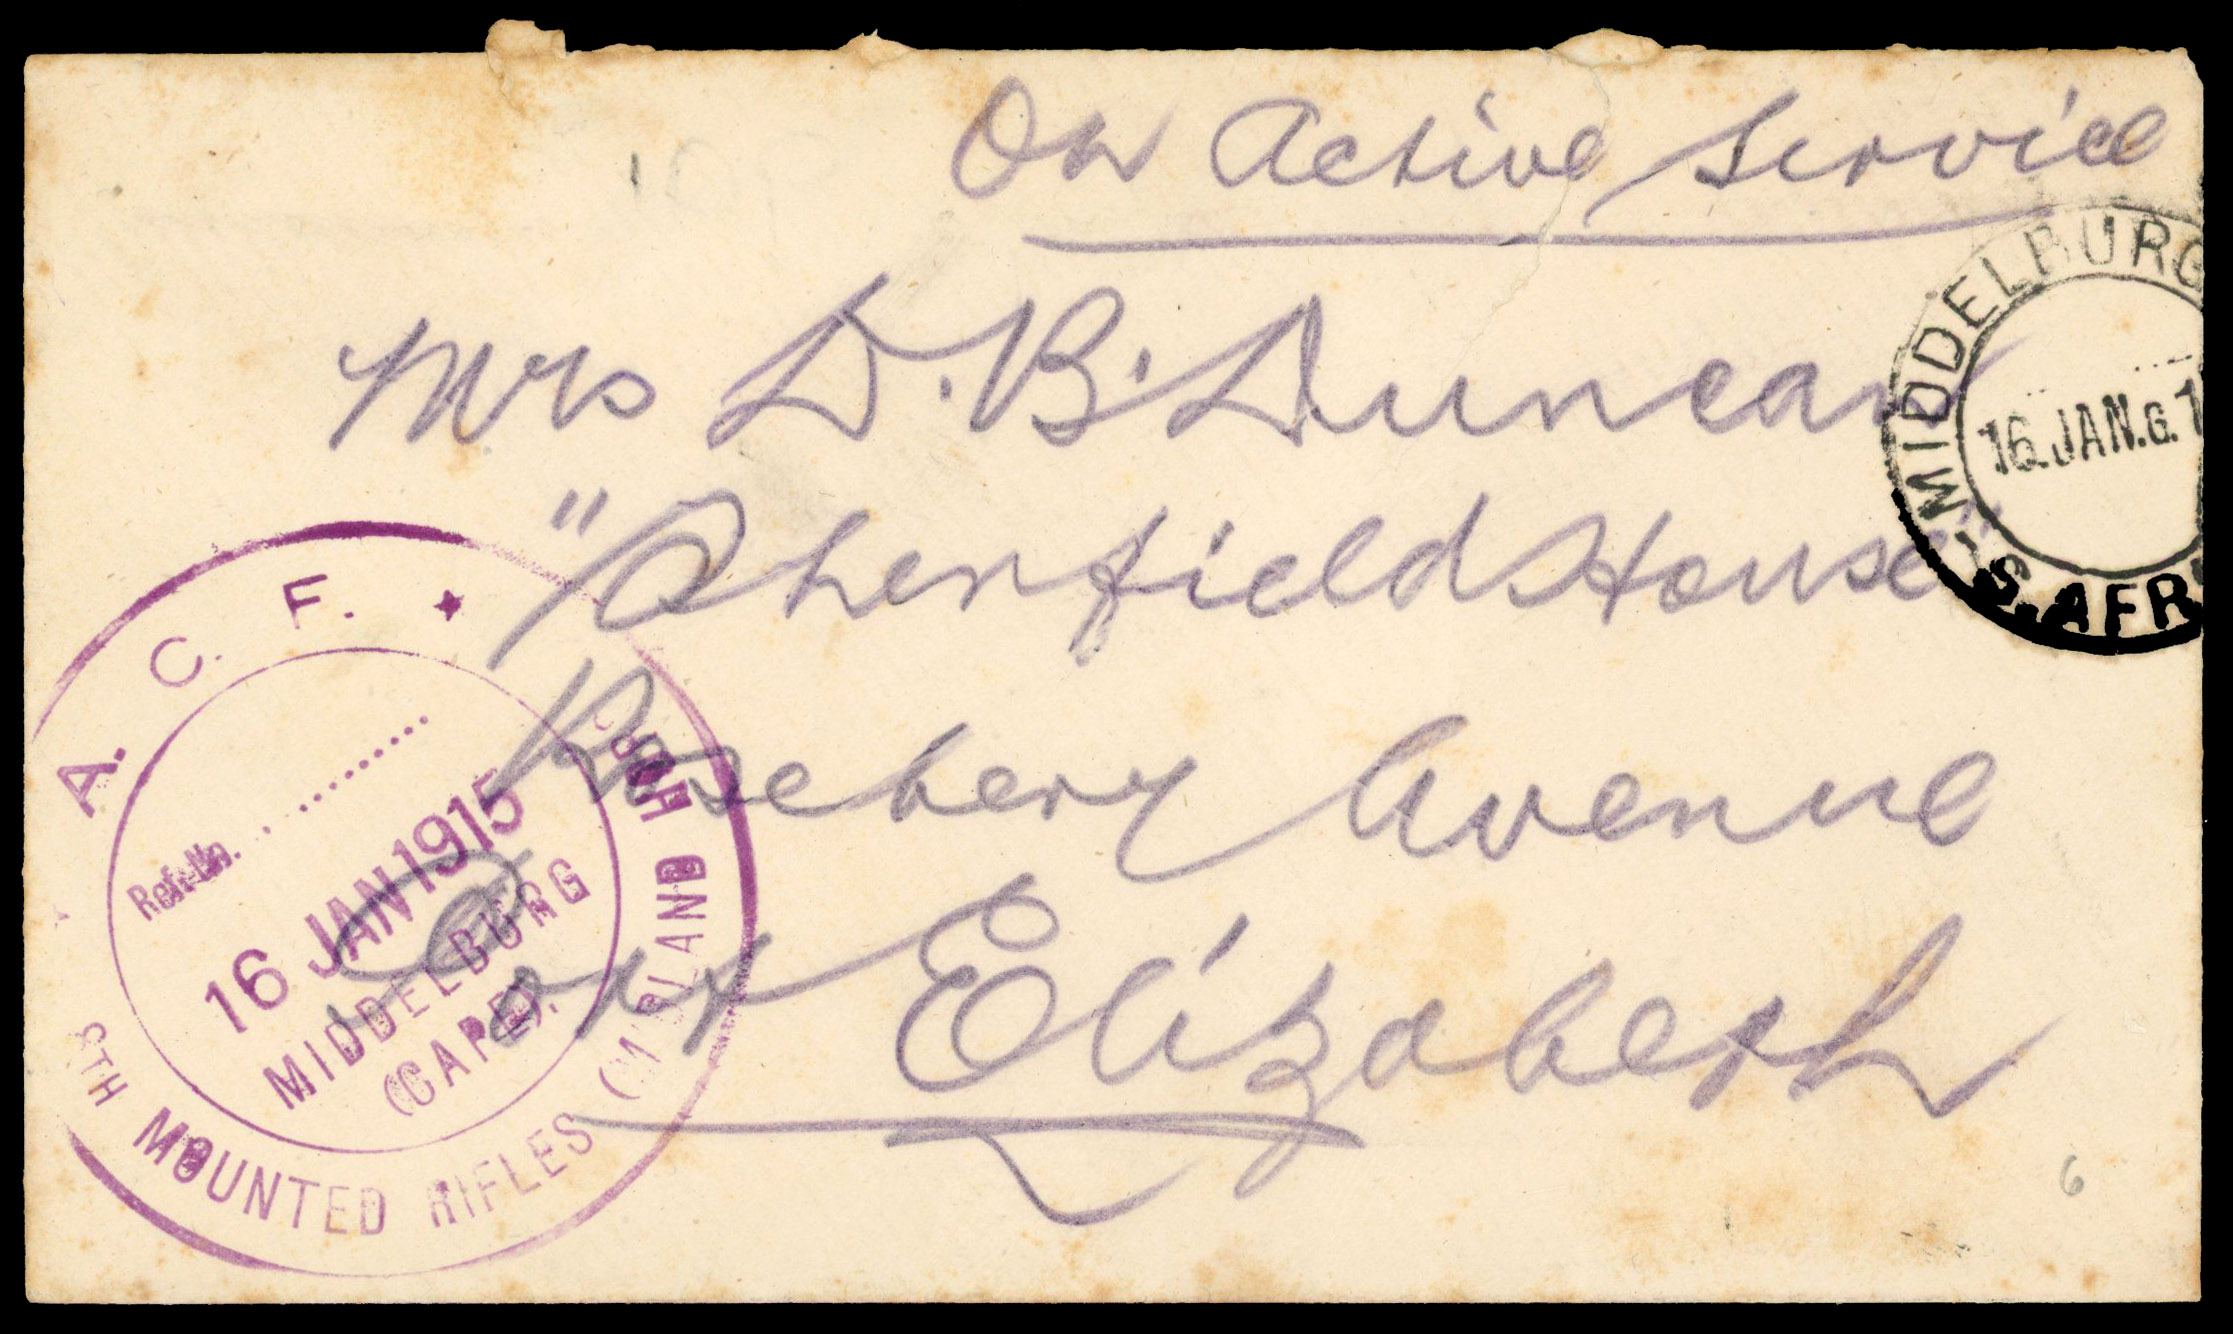 On Active Service
Mrs D. B. Duncan
"Ohenfield House"
Rosebery Avenue
Port Elizabeth
MIDDELBURG
16 JAN.G.1
S. AFR
A. C. F. ★
Ref. No.
16 JAN 1915
MIDDELBURG
(CAPE).
8TH MOUNTED RIFLES (MIDLAND HORSE)
6